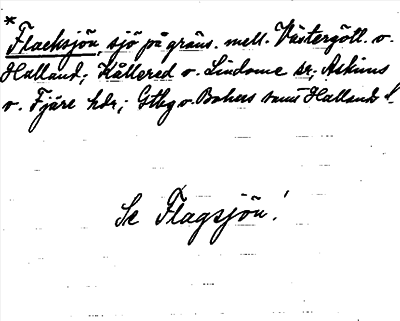 * Flacksjön, sjö på gräns. mell. Västergötl. o.
Halland; Kållered o. Lindome sr; Askims
o. Fjäre hdr; Gtbg o. Bohus samt Hallands l.
Se Flagsjön!